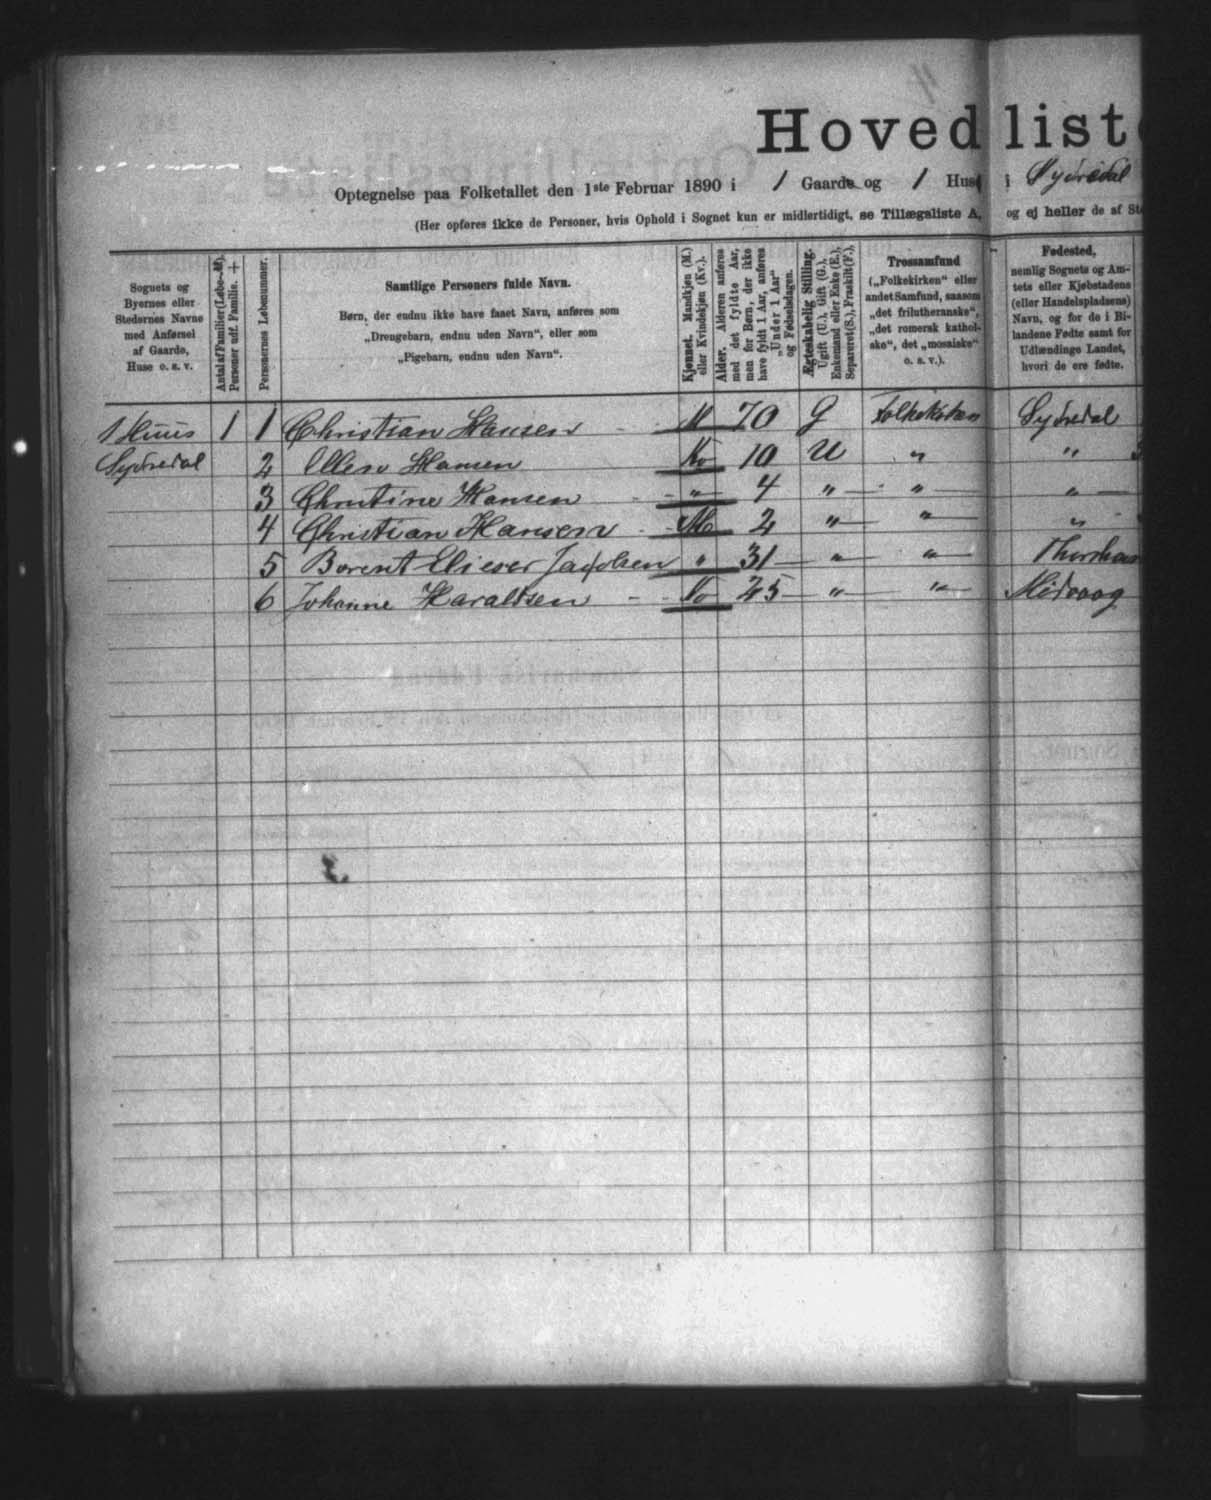 Hovedliste
Optegnelse paa Folketallet den 1ste Februar 1890 i 1 Gaarde og 1 Huse i Sydredal
(Her opføres ikke de Personer, hvis Ophold i Sognet kun er midlertidigt, se Tillægsliste A, og ej heller de af
Sognets og Byernes eller Stedernes Navne med Anførsel af Gaarde, Huse o. s. v.
Antal af Familier (Løbe-№). Personer udf. Familie. +
Personernes Løbenummer.
Samtlige Personers fulde Navn.
Børn, der endnu ikke have faaet Navn, anføres som
„Drengebarn, endnu uden Navn“, eller som
„Pigebarn, endnu uden Navn“.
Kjønnet. Mandkjøn (M.) eller Kvindekjøn (Kv.).
Alder. Alderen anføres med det fyldte Aar, men for Børn, der ikke have fyldt 1 Aar, anføres „Under 1 Aar“ og Fødselsdagen.
Ægteskabelig Stilling. Ugift (U.), Gift (G.), Enkemand eller Enke (E.), Separeret (S.), Fraskilt (F.),
Trossamfund
(„Folkekirken“ eller andet Samfund, saasom „det frilutheranske“, „det romersk katholske“, det „mosaiske“ o. s. v.).
Fødested,
nemlig Sognets og Amtets eller Kjøbstadens (eller Handelspladsens) Navn, og for de i Bilandene Fødte samt for Udlændinge Landet, hvori de ere fødte.
1 Huus 1 1 Christian Hansen M 70 G Folkekirken Sydredal
Sydredal 2 Ellen Hansen Kv 10 U " "
3 Christine Hansen " 4 " " "
4 Christian Hansen M 2 " " "
5 Berent Elieser Jacobsen " 31 " "
6 Johanne Haraldsen Kv 25 " " Midvaag